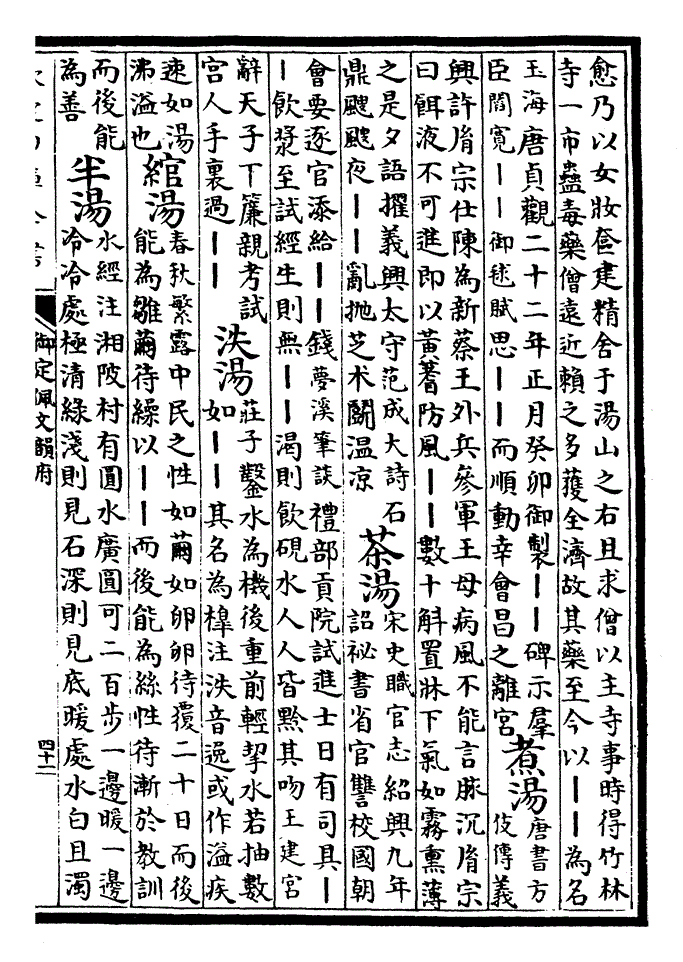 愈乃以女妝奩建精舍于湯山之右且求僧以主寺事時得竹林
寺一市蠱毒藥僧遠近賴之多獲全濟故其藥至今以丨丨為名
玉海唐貞觀二十二年正月癸卯御製丨丨碑示羣
臣閻寬丨丨御毬賦思丨丨而順動幸會昌之離宮
煮湯
唐書方
伎傳義
興許胤宗仕陳為新蔡王外兵參軍王母病風不能言脉沉胤宗
曰餌液不可進即以黃蓍防風丨丨數十斛置牀下氣如霧熏薄
之是夕語擢義興太守范成大詩石
鼎颼颼夜丨丨亂抛芝术鬬温凉
茶湯
宋史職官志紹興九年
詔祕書省官讐校國朝
會要逐官添給丨丨錢夢溪筆談禮部貢院試進士日有司具丨
丨飲漿至試經生則無丨丨渴則飲硯水人人皆黔其吻王建宮
辭天子下簾親考試
宮人手裏過丨丨
泆湯
莊子鑿水為機後重前輕挈水若抽數
如丨丨其名為槔注泆音逸或作溢疾
速如湯
沸溢也
綰湯
春秋繁露中民之性如繭如卵卵待覆二十日而後
能為雛繭待繰以丨丨而後能為絲性待漸於教訓
而後能
為善
半湯
水經注湘陂村有圓水廣圓可二百步一邊暖一邊
冷冷處極清綠淺則見石深則見底暖處水白且濁
御定佩文韻府
四十一